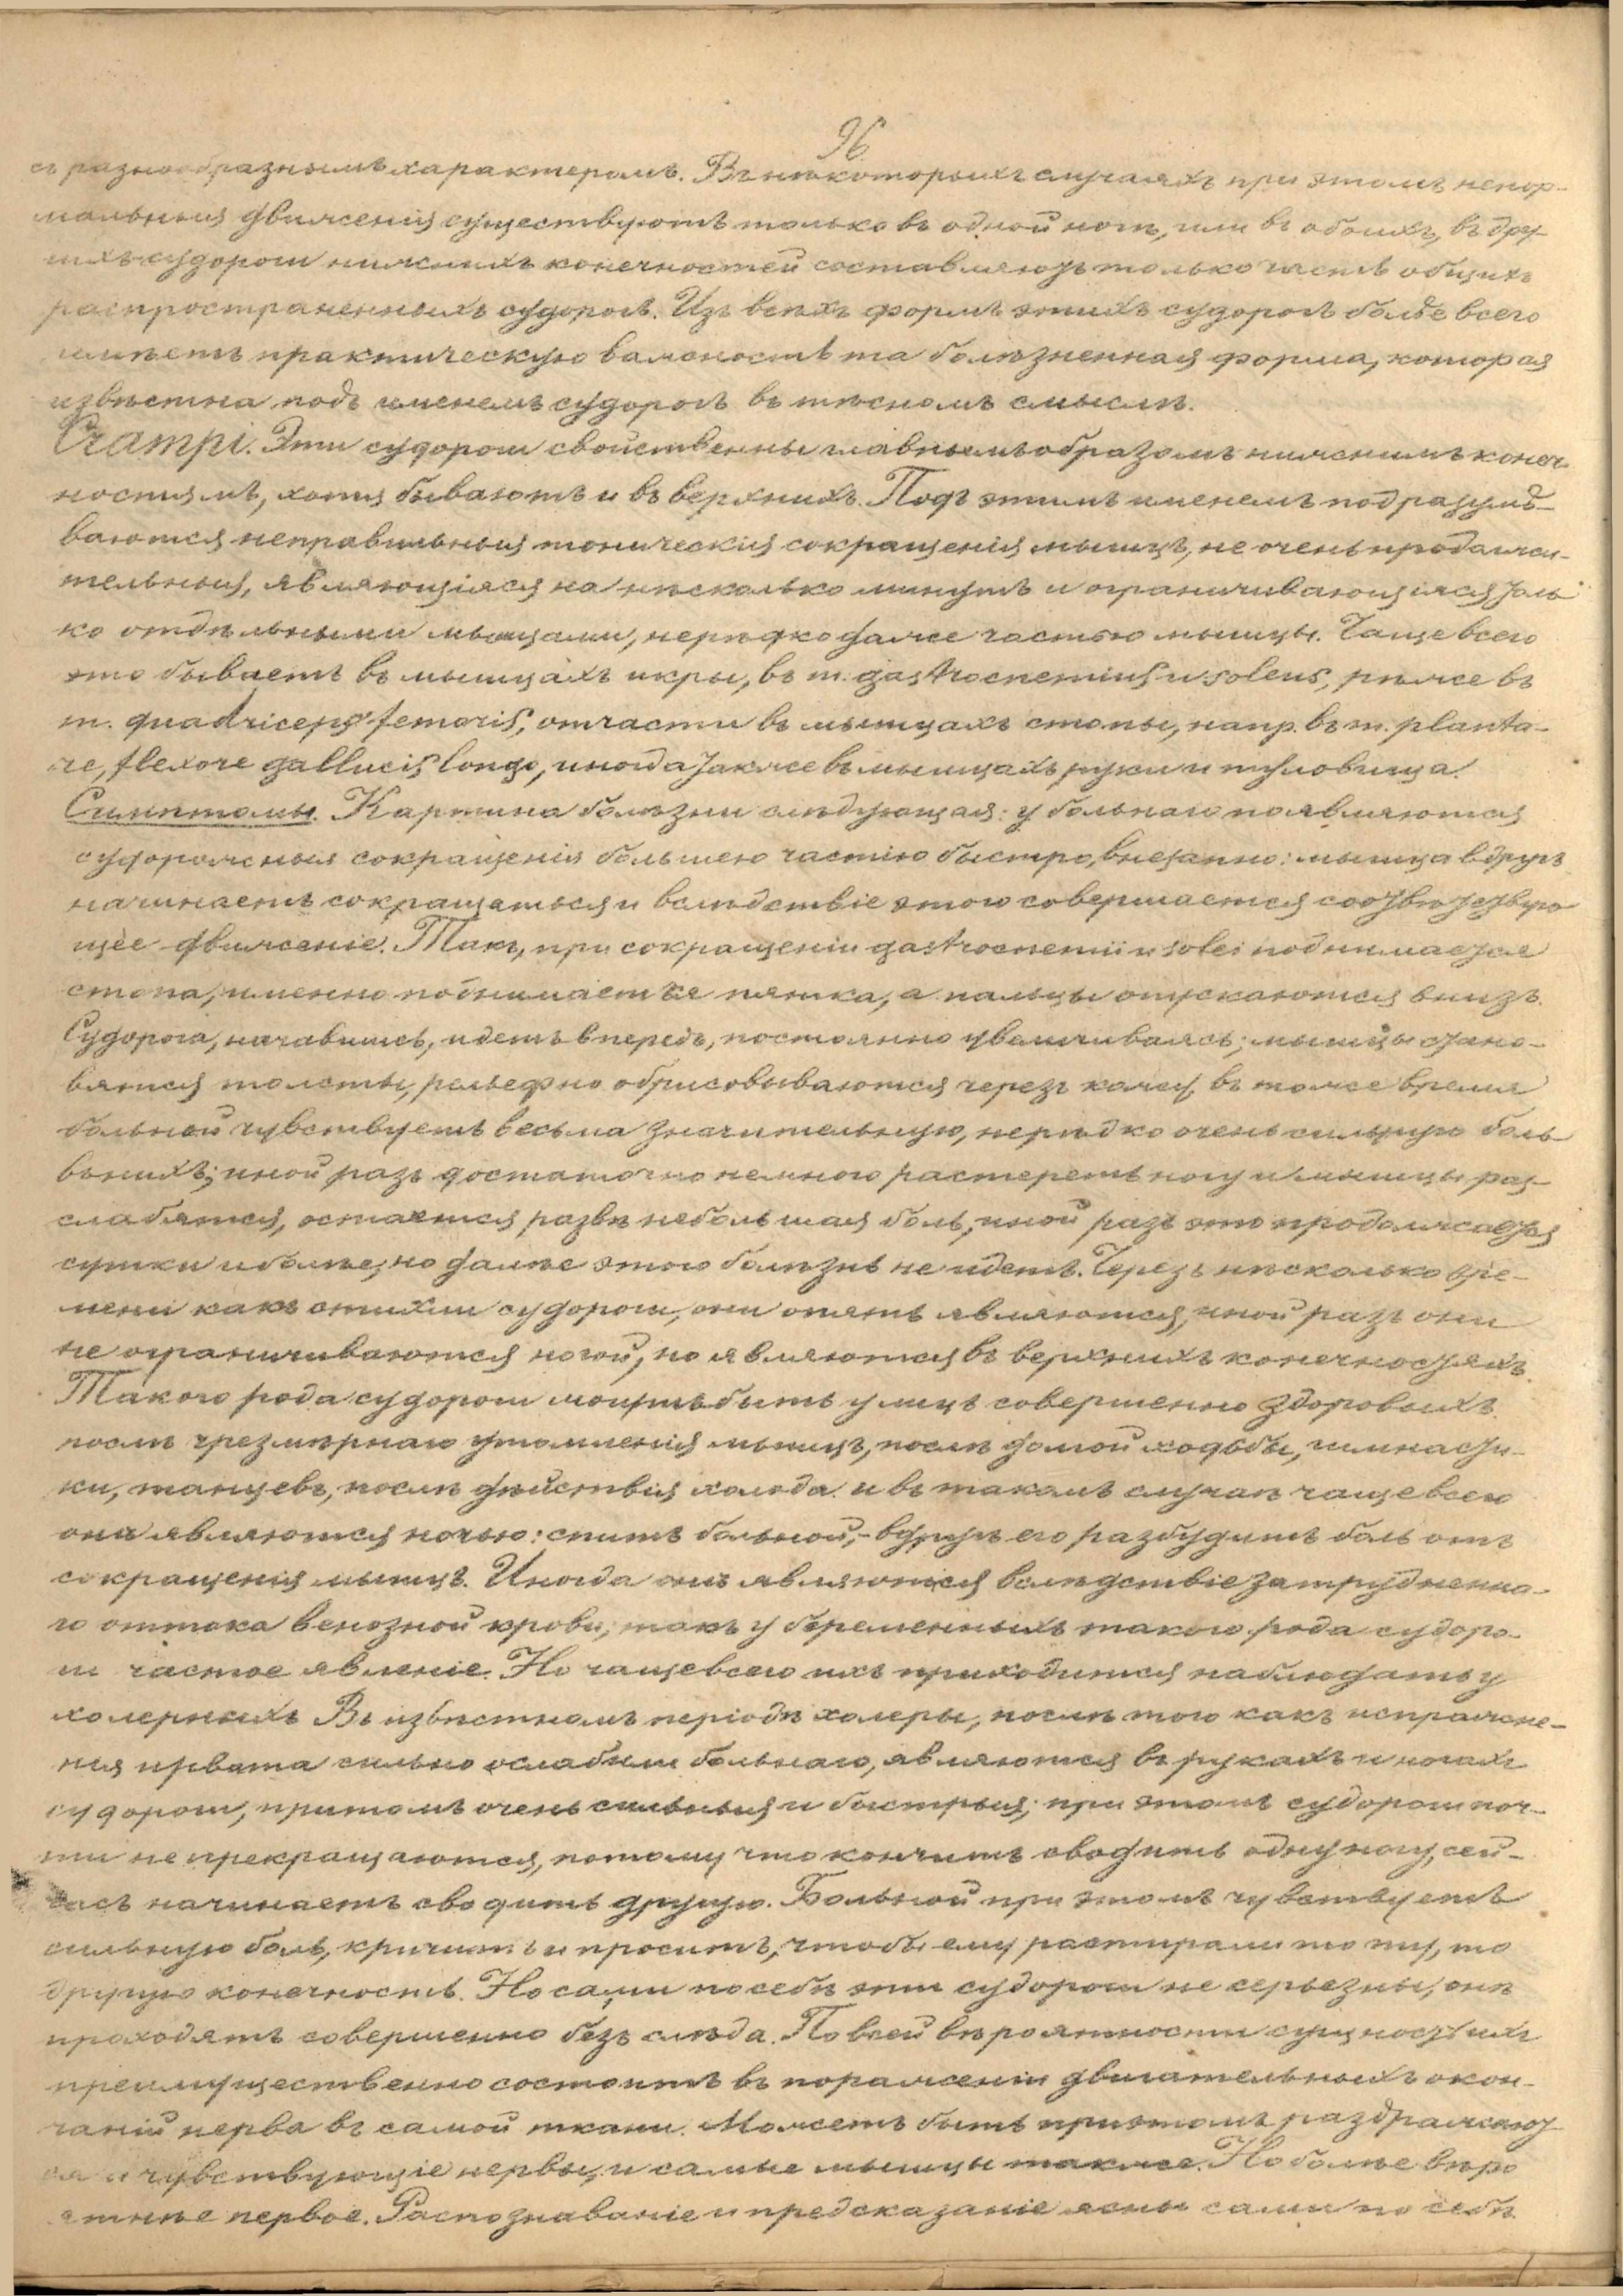 96
съ разнообразнымъ характеромъ. Въ нѣкоторыхъ случаяхъ при этомъ ненор-
мальныя движенія существуютъ только въ одной ногѣ, или въ обоихъ, въ дру-
гихъ судороги нижнихъ конечностей составляютъ только часть общихъ
распространенныхъ судорогъ. Изъ всѣхъ формъ этихъ судорогъ болѣе всего
имѣетъ практическую важность та болѣзненная форма, которая
извѣстна подъ именемъ судорогъ въ тѣсномъ смыслѣ.
Crampi. Эти судороги свойственны главнымъ образомъ нижнимъ конеч-
ностямъ, хотя бываютъ и въ верхнихъ. Подъ этимъ именемъ подразумѣ-
ваются неправильныя тоническія сокращенія мышцъ, не очень продолжи-
тельныя, являющіяся на нѣсколько минутъ и ограничивающіяся толь
ко отдѣльными мышцами, нерѣдко даже частью мышцы. Чаще всего
это бываетъ въ мышцахъ икры, въ m. gastrocnemius и soleus, рѣже въ
m. quadriceps femoris, отчасти въ мышцахъ стопы, напр. въ m. planta-
re, flexore gallucis longo, иногда также въ мышцахъ руки и туловища.
Симптомы. Картина болѣзни слѣдующая: у больнаго появляются
судорожныя сокращенія большею частію быстро, внезапно: мышца вдругъ
начинаетъ сокращаться и вслѣдствіе этого совершается соотвѣтствую
щее движеніе. Такъ, при сокращеніи gastrocnemii и solei поднимается
стопа, именно поднимается пятка, а пальцы опускаются внизъ.
Судорога, начавшись, идетъ впередъ, постоянно увеличиваясь; мышцы стано-
вятся толсты, рельефно обрисовываются черезъ кожу, въ тоже время
больной чувствуетъ весьма значительную, нерѣдко очень сильную боль
въ нихъ; иной разъ достаточно немного растереть ногу и мышцы раз-
слабятся, остается развѣ небольшая боль, иной разъ это продолжается
сутки и болѣе, но далѣе этого болѣзнь не идетъ. Черезъ нѣсколько вре-
мени какъ стихли судороги, они опять являются, иной разъ они
не ограничиваются ногой, но являются въ верхнихъ конечностяхъ.
Такого рода судороги могутъ быть у лицъ совершенно здоровыхъ
послѣ чрезмѣрнаго утомленія мышцъ, послѣ долгой ходьбы, гимнасти-
ки, танцевъ, послѣ дѣйствія холода. и въ такомъ случаѣ чаще всего
они являются ночью: спитъ больной,- вдругъ его разбудитъ боль отъ
сокращенія мышцъ. Иногда онѣ являются вслѣдствіе затрудненна-
го оттока венозной крови, такъ у беременныхъ такого рода судоро-
ги частое явленіе. Но чаще всего ихъ приходится наблюдать у
холерныхъ Въ извѣстномъ періодѣ холеры, послѣ того какъ испражне-
нія и рвота сильно ослабили больнаго, являются въ рукахъ и ногахъ
судороги, притомъ очень сильныя и быстрыя; при этомъ судороги поч-
ти не прекращаются, потому что кончитъ сводить одну ногу, сей-
часъ начинаетъ сводить другую. Больной при этомъ чувствуетъ
сильную боль, кричитъ и проситъ, чтобы ему растирали то ту, то
другую конечность. Но сами по себѣ эти судороги не серьезны, онѣ
проходятъ совершенно безъ слѣда. По всей вѣроятности сущность ихъ
преимущественно состоитъ въ пораженіи двигательныхъ окон-
чаній нерва въ самой ткани. Можетъ быть при этомъ раздражают-
ся и чувствующіе нервы, и самые мышцы также. Но болѣе вѣро
ятнѣе первое. Распознаваніе и предсказаніе ясны сами по себѣ